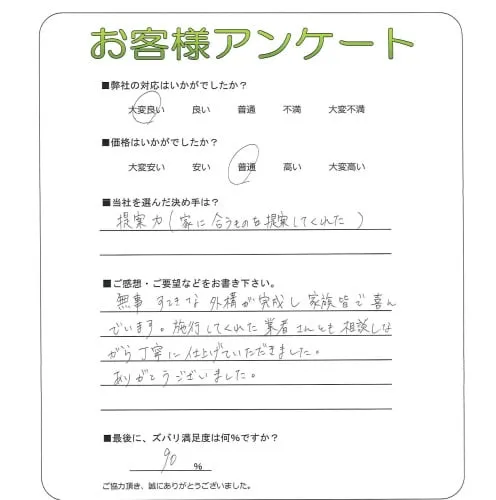 お客様アンケート
■弊社の対応はいかがでしたか?
大変良い 良い 普通 不満 大変不満
■価格はいかがでしたか?
大変安い 安い 普通 高い 大変高い
■当社を選んだ決め手は?
提案力(家に合うものを提案してくれた)
■ご感想・ご要望などをお書き下さい。
無事 すてきな 外構が完成し 家族皆で喜ん
でいます。施行してくれた業者さんとも相談しな
がら丁寧に仕上げていただきました。
ありがとうございました。
■最後に、ズバリ満足度は何%ですか?
90 %
ご協力頂き、誠にありがとうございました。